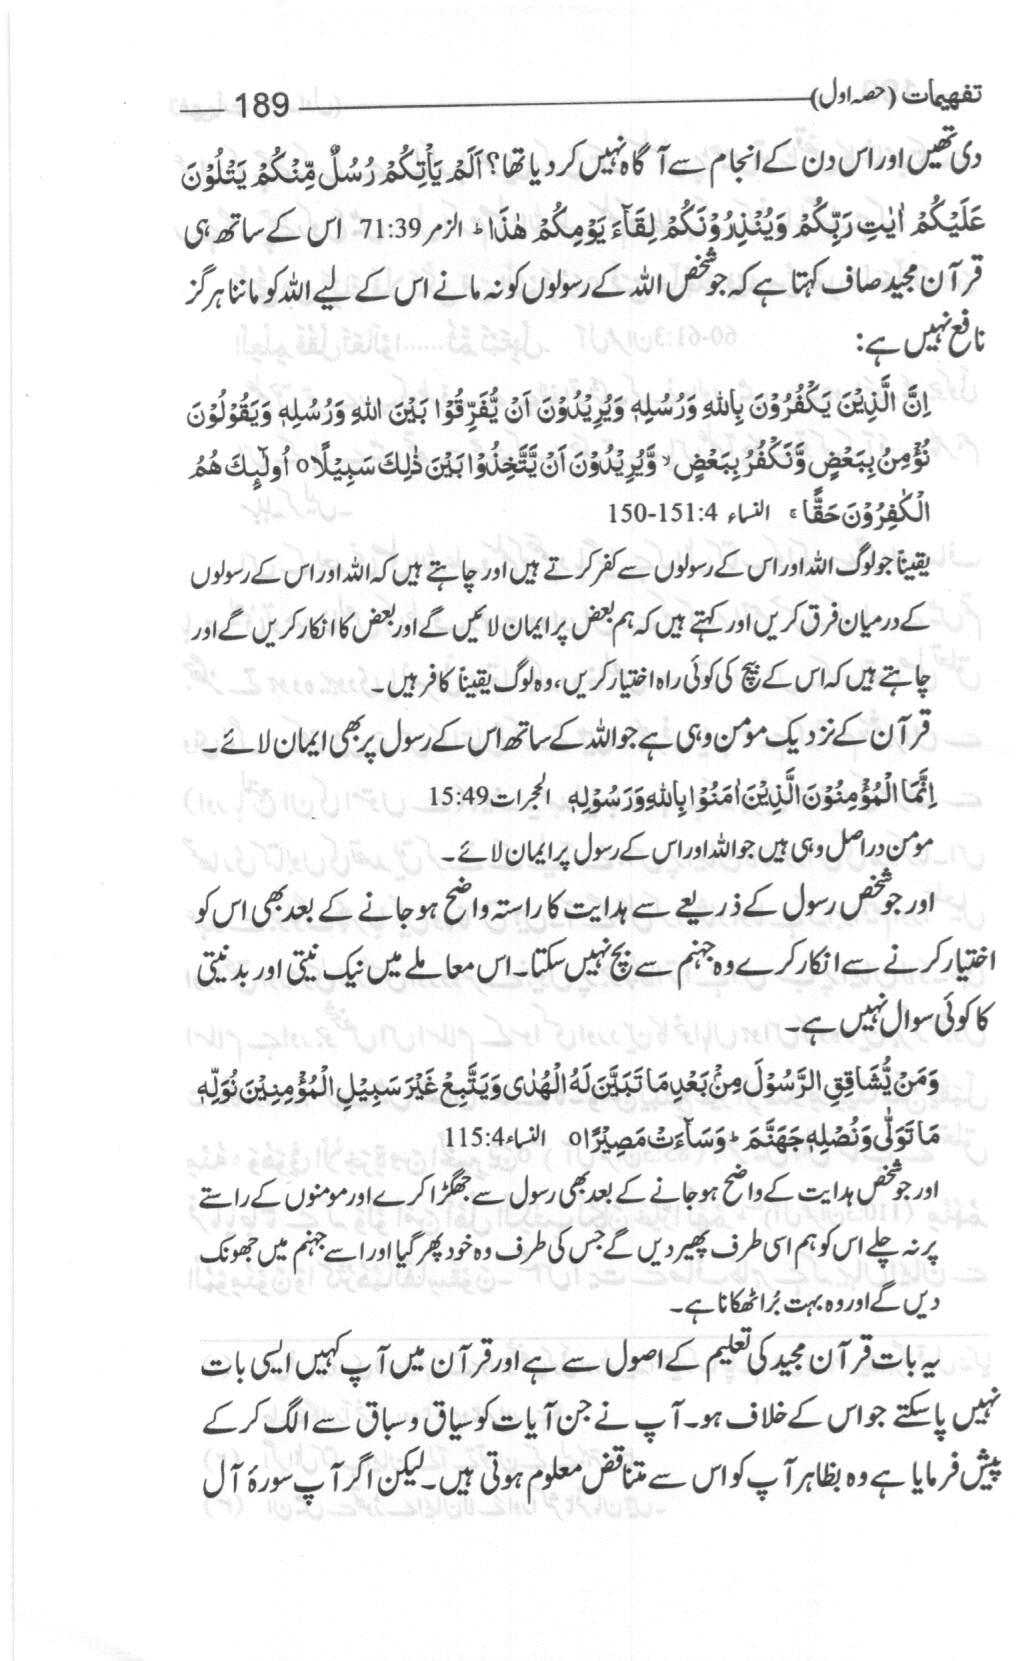 تفہیمات (حصہ اول) 189
دی تھیں اور اس دن کے انجام سے آگاہ نہیں کر دیا تھا؟ اَلَمْ يَاْتِكُمْ رُسُلٌ مِّنْكُمْ يَتْلُوْنَ
عَلَيْكُمْ اٰيٰتِ رَبِّكُمْ وَيُنْذِرُوْنَكُمْ لِقَآءَ يَوْمِكُمْ هٰذَا ؕ الزمر 71:39 اس کے ساتھ ہی
قرآن مجید صاف کہتا ہے کہ جو شخص اللہ کے رسولوں کو نہ مانے اس کے لیے اللہ کو ماننا ہرگز
نافع نہیں ہے:
اِنَّ الَّذِيْنَ يَكْفُرُوْنَ بِاللهِ وَرُسُلِهٖ وَيُرِيْدُوْنَ اَنْ يُّفَرِّقُوْا بَيْنَ اللهِ وَرُسُلِهٖ وَيَقُوْلُوْنَ
نُؤْمِنُ بِبَعْضٍ وَّنَكْفُرُ بِبَعْضٍ ۙ وَّيُرِيْدُوْنَ اَنْ يَّتَّخِذُوْا بَيْنَ ذٰلِكَ سَبِيْلًا ○ اُولٰٓئِكَ هُمُ
الْكٰفِرُوْنَ حَقًّا ۚ النساء 4:151-150
یقیناً جو لوگ اللہ اور اس کے رسولوں سے کفر کرتے ہیں اور چاہتے ہیں کہ اللہ اور اس کے رسولوں
کے درمیان فرق کریں اور کہتے ہیں کہ ہم بعض پر ایمان لائیں گے اور بعض کا انکار کریں گے اور
چاہتے ہیں کہ اس کے بیچ کی کوئی راہ اختیار کریں، وہ لوگ یقیناً کافر ہیں۔
قرآن کے نزدیک مومن وہی ہے جو اللہ کے ساتھ اس کے رسول پر بھی ایمان لائے۔
اِنَّمَا الْمُؤْمِنُوْنَ الَّذِيْنَ اٰمَنُوْا بِاللهِ وَرَسُوْلِهٖ الحجرات 15:49
مومن دراصل وہی ہیں جو اللہ اور اس کے رسول پر ایمان لائے۔
اور جو شخص رسول کے ذریعے سے ہدایت کا راستہ واضح ہو جانے کے بعد بھی اس کو
اختیار کرنے سے انکار کرے وہ جہنم سے بچ نہیں سکتا۔ اس معاملے میں نیک نیتی اور بدنیتی
کا کوئی سوال نہیں ہے۔
وَمَنْ يُّشَاقِقِ الرَّسُوْلَ مِنْۢ بَعْدِ مَا تَبَيَّنَ لَهُ الْهُدٰى وَيَتَّبِعْ غَيْرَ سَبِيْلِ الْمُؤْمِنِيْنَ نُوَلِّهٖ
مَا تَوَلّٰى وَنُصْلِهٖ جَهَنَّمَ ؕ وَسَآءَتْ مَصِيْرًا ○ النساء 115:4
اور جو شخص ہدایت کے واضح ہو جانے کے بعد بھی رسول سے جھگڑا کرے اور مومنوں کے راستے
پر نہ چلے اس کو ہم اسی طرف پھیر دیں گے جس کی طرف وہ خود پھر گیا اور اسے جہنم میں جھونک
دیں گے اور وہ بہت بُرا ٹھکانا ہے۔
یہ بات قرآن مجید کی تعلیم کے اصول سے ہے اور قرآن میں آپ کہیں ایسی بات
نہیں پا سکتے جو اس کے خلاف ہو۔ آپ نے جن آیات کو سیاق و سباق سے الگ کر کے
پیش فرمایا ہے وہ بظاہر آپ کو اس سے متناقض معلوم ہوتی ہیں۔ لیکن اگر آپ سورۂ آل